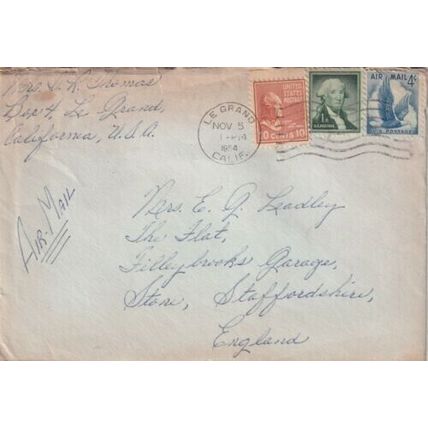 Mrs. S. R. Thomas
Box 4, Le Grand,
California, U.S.A.
UNITED STATES POSTAGE
10 CENTS 10
1¢
WASHINGTON
AIR MAIL 4¢
U.S. POSTAGE
LE GRAND
NOV 5
1954
CALIF.
AIR MAIL
Mrs. E. G. Leadley
The Flat,
Filleybrooks Garage,
Stone, Staffordshire,
England